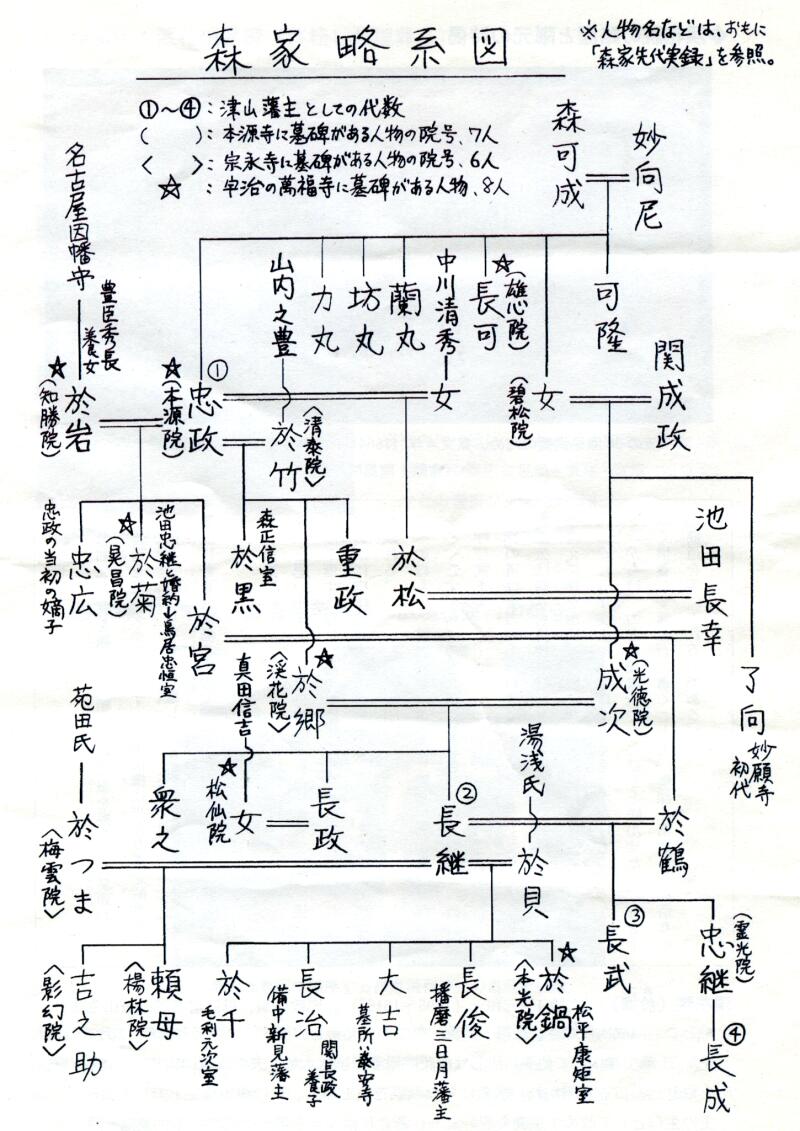 森家略系図
※人物名などは、おもに
「森家先代実録」を参照。
①〜④：津山藩主としての代数
(　　)：本源寺に墓碑がある人物の院号、7人
〈　　〉：宗永寺に墓碑がある人物の院号、6人
☆：宇治の萬福寺に墓碑がある人物、8人
妙向尼
森可成
可隆
☆
長可
(雄心院)
中川清秀
蘭丸
坊丸
力丸
山内之豊
名古屋因幡守
豊臣秀長
養女
関成政
女
(碧松院)
女
①
忠政
☆
(本源院)
於竹
〈清泰院〉
於岩
☆
(知勝院)
池田長幸
於松
重政
於黒
森正信室
於宮
池田忠継と婚約→鳥居忠恒室
於菊
☆
(晃昌院)
忠広
忠政の当初の嫡子
了向
妙願寺
初代
成次
☆
(光徳院)
於郷
☆
〈渓花院〉
真田信吉
苑田氏
湯浅氏
於鶴
②
長継
長政
女
☆
松仙院
衆之
於貝
於つま
〈梅雲院〉
③
長武
忠継
(霊光院)
④
長成
於鍋
☆
〈本光院〉
松平康矩室
長俊
播磨三日月藩主
大吉
墓所ハ泰安寺
長治
関長政
養子
備中新見藩主
於千
毛利元次室
頼母
〈楊林院〉
吉之助
〈影幻院〉